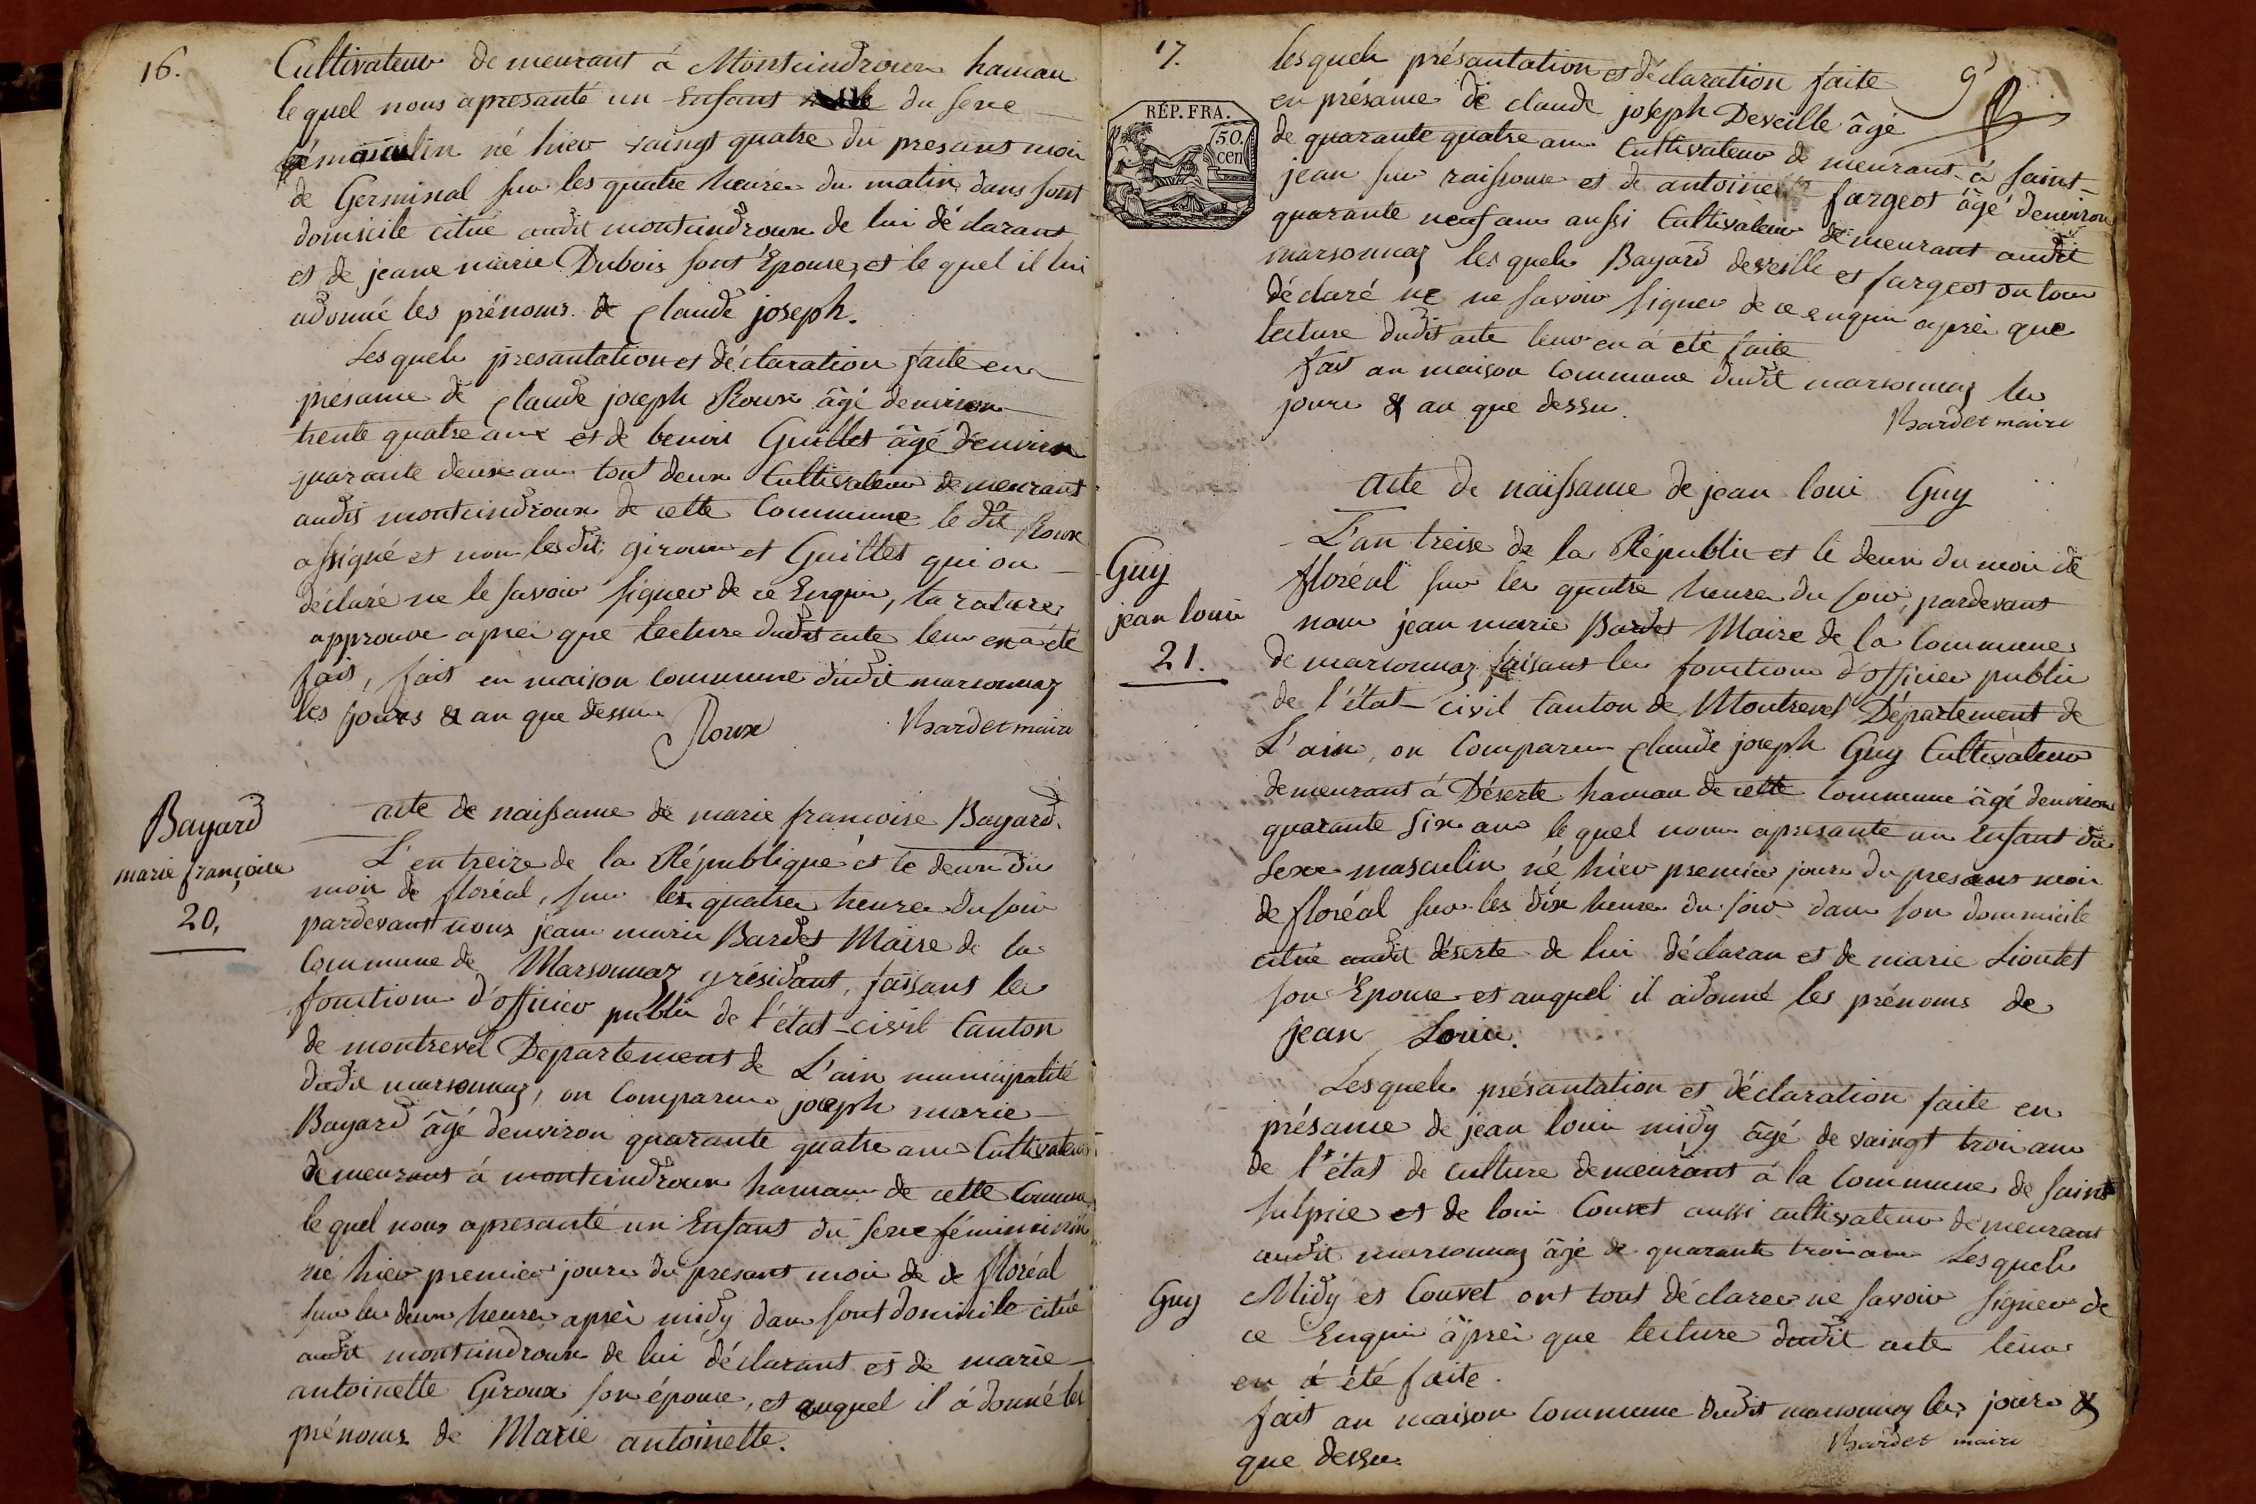 16.
Cultivateur demeurant à Montsindroux hamau
lequel nous apresanté un Enfant du sexe
masculin né hier vaingt quatre du presant moi
de Germinal sur les quatre heures du matin dans sont
domicile citué audit montsindroux de lui déclarant
et de jeane marie Dubois sont Epouse, et le quel il lui
adonné les prénoms de Claude joseph.
Les quels presantation et déclaration faite en
présance de Claude joseph Roux âgé denviron
trente quatre ans et de benoit Guillet âgé denviron
quarante deux ans tout deux Cultivateur demeurant
audit montsindroux de cette Commune le dit Roux
assigné et non lesdit giroux et Guillet qui on
déclaré ne le savoir signer de ce Enquis, la rature
approuve après que lecture dudit acte leur en a été
fait, fait en maison commune dudit marsonnaz
les jours & an que dessus
Roux Bardet maire
Bayard
marie françoise
20,
acte de naissance de marie francoise Bayard.
L'en treize de la République et le deux du
mois de floréal, sur les quatre heures du soir
pardevant nous jean marie Bardet Maire de la
Commune de Marsonnaz y résidant, faisant les
fonctions d'officier public de l'état-civil Canton
de montrevel Departement de L'ain municipalité
dudit marsonnaz, on Comparu joseph marie
Bayard âgé denviron quarante quatre ans Cultivateur
demeurant à montsindroux hamau de cette Commune
le quel nous apresanté un Enfant du sexe féminin
né hier premier jours du presant mois de de floréal
sur les deux heures après midy dans sont domicile citué
audit montsindroux de lui déclarant et de marie
antoinette Giroux son épouse, et auquel il à donné les
prénoms de Marie antoinette.
17.
RÉP. FRA.
50.
cen
9
les quels présantation et déclaration faite
en présance de claude joseph Deveille âgé
de quarante quatre ans Cultivateur demeurant à saint
jean sur raissouse et de antoine fargeot âgé denviron
quarante neuf ans aussi Cultivateur demeurant audit
marsonnaz les quels Bayard deveille et fargeot on tous
déclaré ne ne savoir signer de ce enquis après que
lecture dudit acte leur en a été faite
fait an maison Commune dudit marsonnaz les
jours & an que dessu.
Bardet maire
Guy
jean loui
21.
acte de naissance de jean loui Guy
L'an treise de la Républic et le deux du moi de
floréal sur les quatre heures du soir, pardevant
nous jean marie Bardet Maire de la Commune
de marsonnaz faisant les fonctions d'officier public
de l'état-civil Canton de Montrevel Département de
L'ain, on Comparu Claude joseph Guy Cultivateur
demeurant à Déserte hamau de cette Commune âgé denviron
quarante six ans le quel nous apresanté un Enfant du
sexe masculin né hier premier jours du presant moi
de floréal sur les dix heures du soir dans son dommicile
citué audit déserte de lui déclaran et de marie Lioutet
son Epouse et auquel il adonné les prénoms de
jean Louis.
Lesquels présantation et déclaration faite en
présance de jean loui midy âgé de vaingt troi ans
de l'état de culture demeurant à la Commune de saint
Sulpice et de loui Couvet aussi cultivateur demeurant
audit marsonnaz âgé de quarante troi ans Lesquels
Guy Midy et Couvet ont tout déclarer ne savoir signer de
ce Enquis après que lecture dudit acte leur
en à été faite.
fait an maison Commune dudit marsonnaz les jours &
que dessu.
Bardet maire